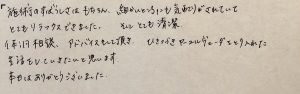 施術のすばらしさはもちろん、細かいところにも気配りがされていて
とてもリラックスできました。そしてとても清潔
体調相談、アドバイスもして頂き、ひきつづきアーユルヴェーダをとり入れた
生活をしていきたいと思います
本日はありがとうございました。